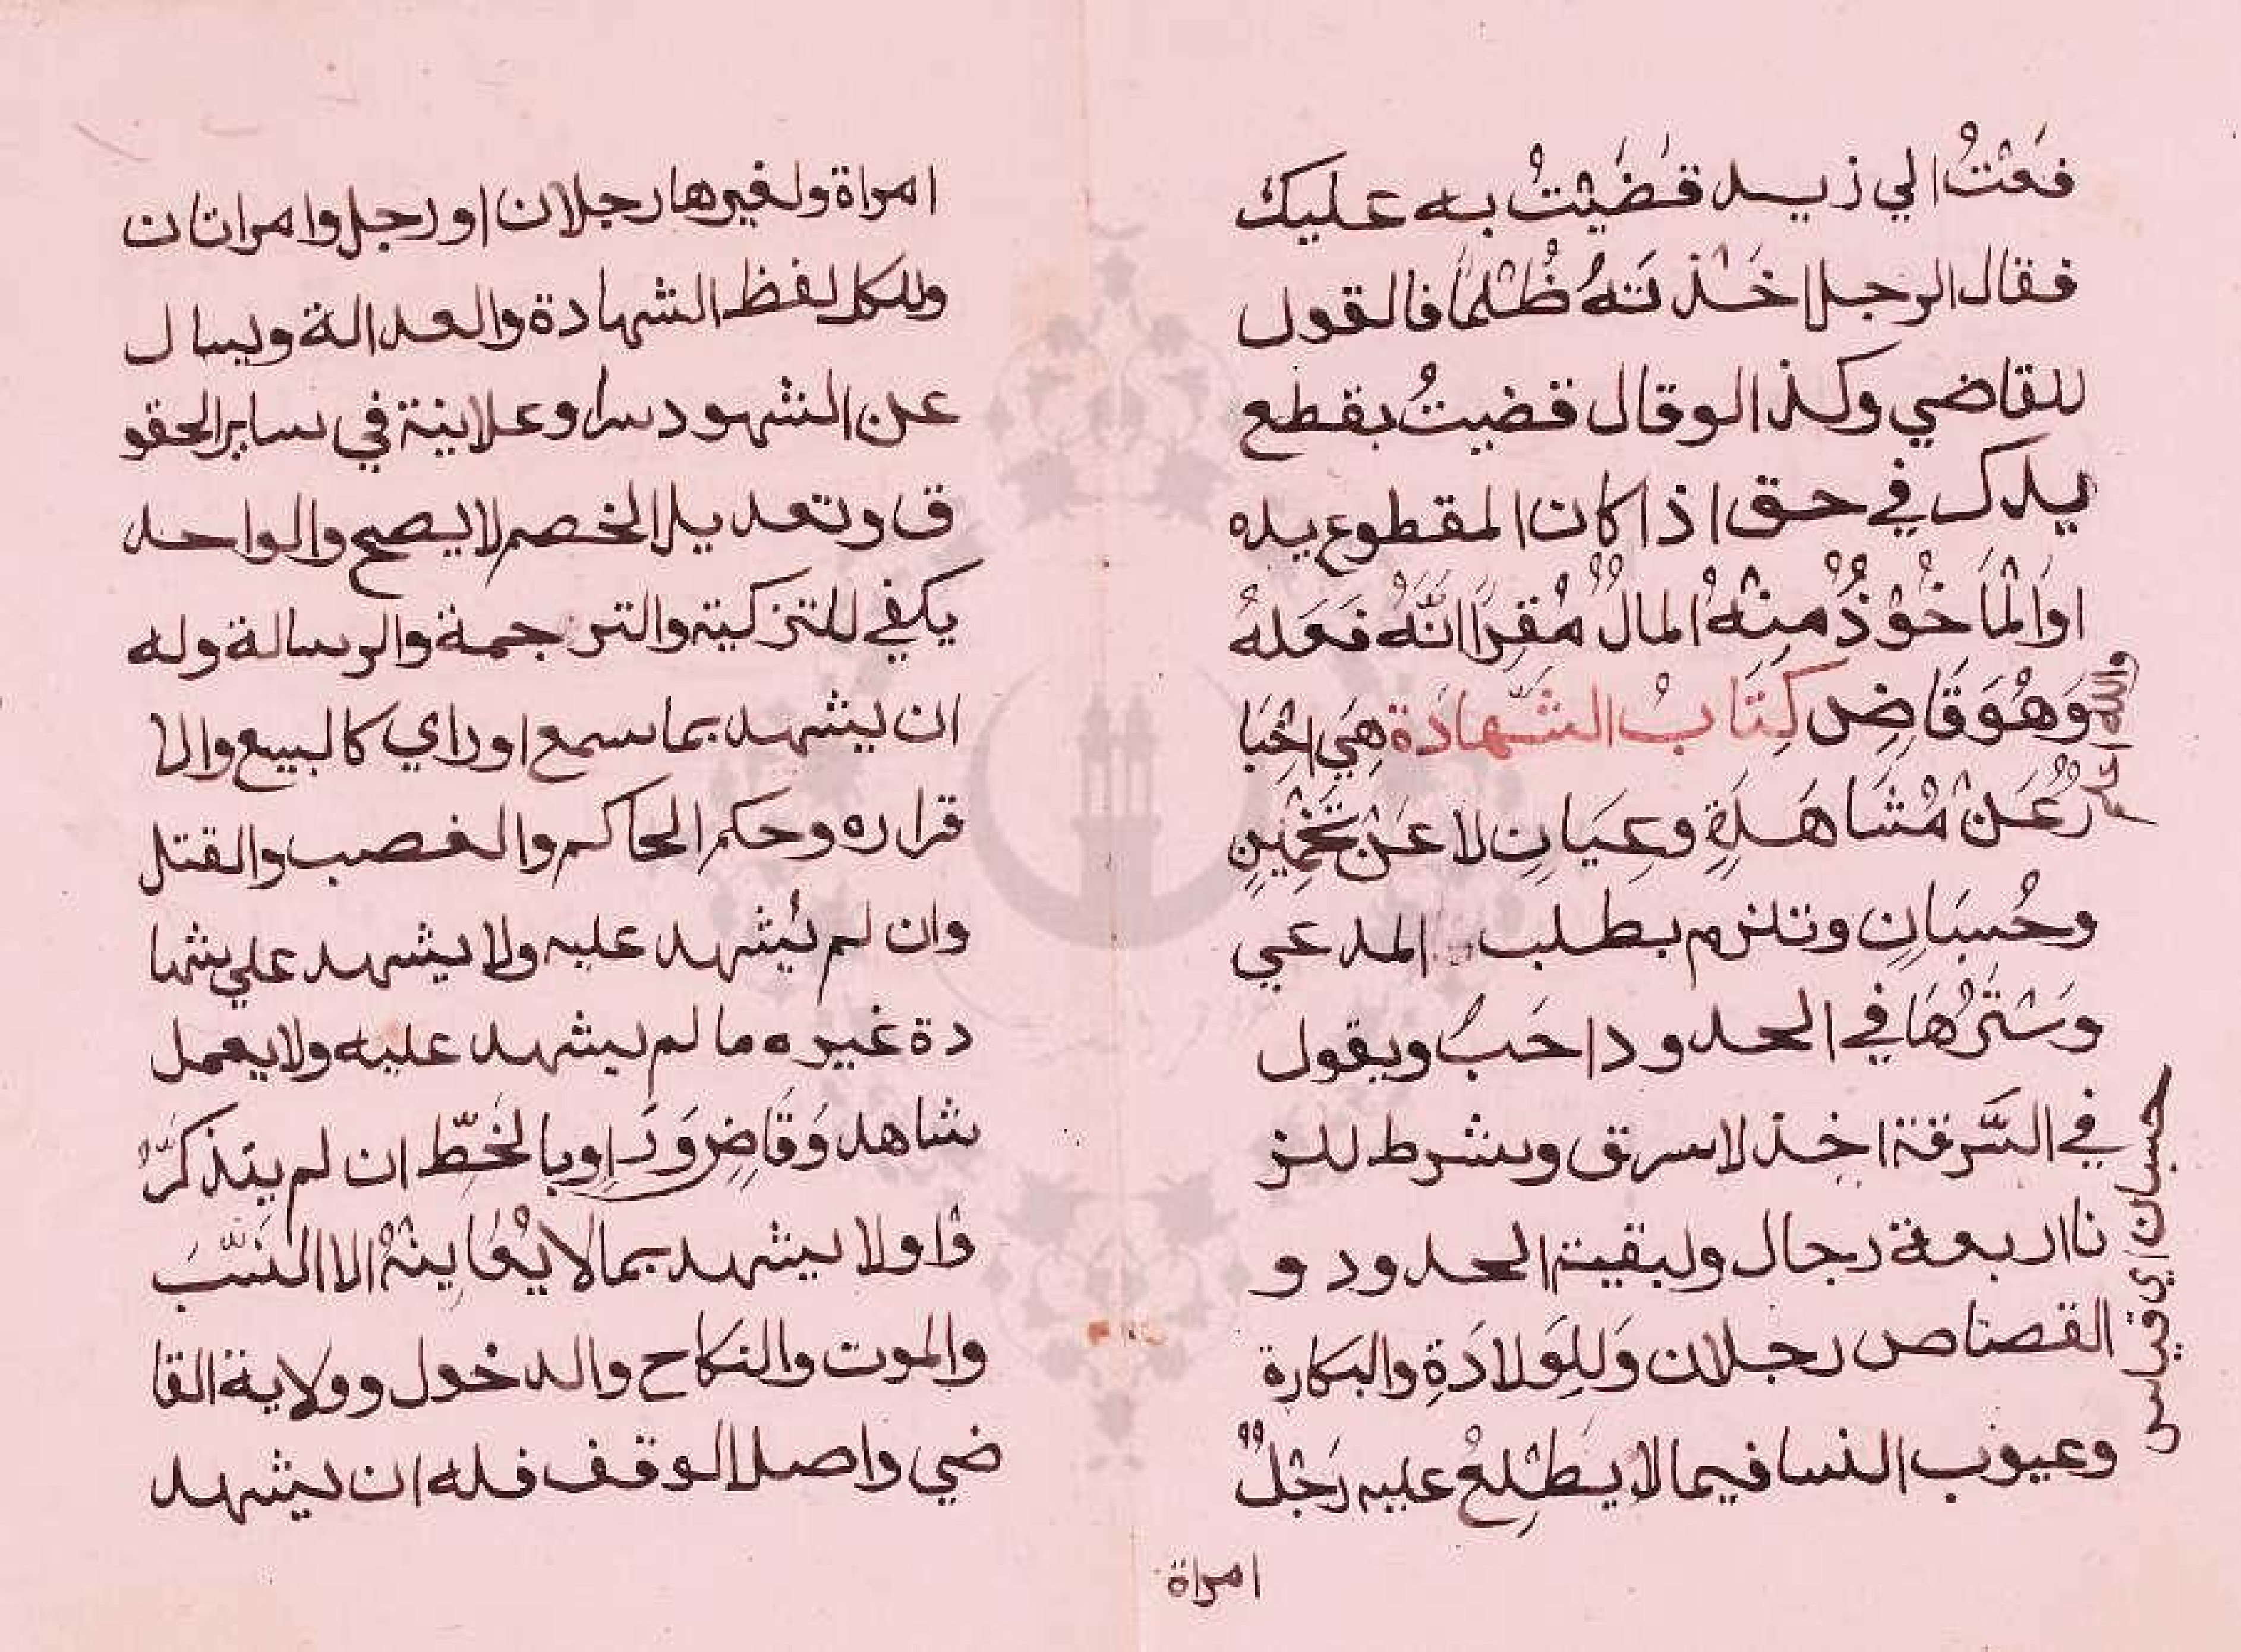 فعْتُ الي زيد قضَيْتُ به عليك
فقال الرجل اخَذْتَهُ ظُلْمًا فالقول
للقاضي وكذا لو قال قضيتُ بقطع
يدك في حق اذا كان المقطوع يده
اوَالْمَأخُوْذُ مِنْهُ المالُ مُقِرًا انَّهُ فَعَلهُ
وَهُوَ قَاضٍ كِتَابُ الشَّهادَة هِيَ اخْبَا
رٌ عَنْ مُشَاهَدَةٍ وعِيَانٍ لا عَنْ تَخْمِيْنٍ
وحُسبَانٍ وتلزم بطلب المدعي
وسَتْرُهَا في الحدود احَبُّ ويقول
في السَّرقة اخِذ لا سرق وشرط للز
نا اربعة رجال ولبقية الحدود و
القصاص رجلان وَلِلوَلادَةِ والبَكارة
وعيوب النسا فيما لا يَطَّلِعُ عليه رَجُلٌ
امراة
والله اعلم
حسبان اي قياس
امراة ولغيرها رجلان او رجل وامراتان
وللكل لفظ الشهادة والعدالة ويسال
عن الشهود سرا وعلانية في ساير الحقو
ق وتعديل الخصم لا يصح والواحد
يكفي للتزكية والترجمة والرسالة وله
ان يشهد بما سمع او راي كالبيع والا
قراره وحكم الحاكم والغصب والقتل
وان لم يُشهد عليه ولا يشهد علي شها
دة غيره ما لم يشهد عليه ولا يعمل
شاهد وَقَاضٍ وَرَاوٍ بالخَطِّ ان لم يتذكرُّ
وْا ولا يشهد بما لا يُعَايِنهُ الا النسَّبَ
والموت والنكاح والدخول وولاية القا
ضي واصل الوقف فله ان يشهد